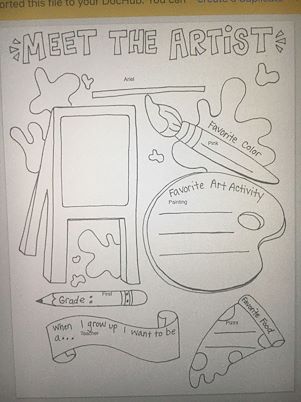 orted this file to your DocHub. You can Create a Duplicate
MEET THE ARTIST
Ariel
Favorite Color
Pink
Favorite Art Activity
Painting
Grade: First
When I grow up I want to be
a... Teacher
Favorite Food
Pizza